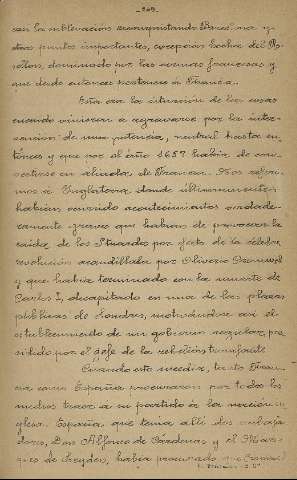 con la sublevación reconquistando
otros puntos importantes, excepcion hecha del Ro
sellon, dominado por las armas francesas y
que desde entonces pertenece á Francia.
Esta era la situación de las cosas
cuando vinieron á agravarse por la inter-
vencion de una potencia, neutral hasta en
tónces y que por el año 1657 habia de con-
vertirse en aliada de Francia. Nos referi-
mos á Inglaterra donde últimamente
habian ocurrido acontecimientos verdade-
ramente graves que habian de provocar la
caida de los Stuardos por efecto de la célebre
revolución acaudillada por Oliverio Cromwel
y que habia terminado con la muerte de
Carlos I, decapitado en una de las plazas
públicas de Londres, motivándose asi el
establecimiento de un gobierno regular, pre
sidido por el gefe de la rebelión triunfante.
Cuando esto sucedia, tanto Fran-
cia como España procuraron por todos los
medios traer á su partido á la nación in-
glesa. España que tenia alli dos embaja
dores, Don Alfonso de Cárdenas y el Mar-
ques de Leyden, habia procurado que